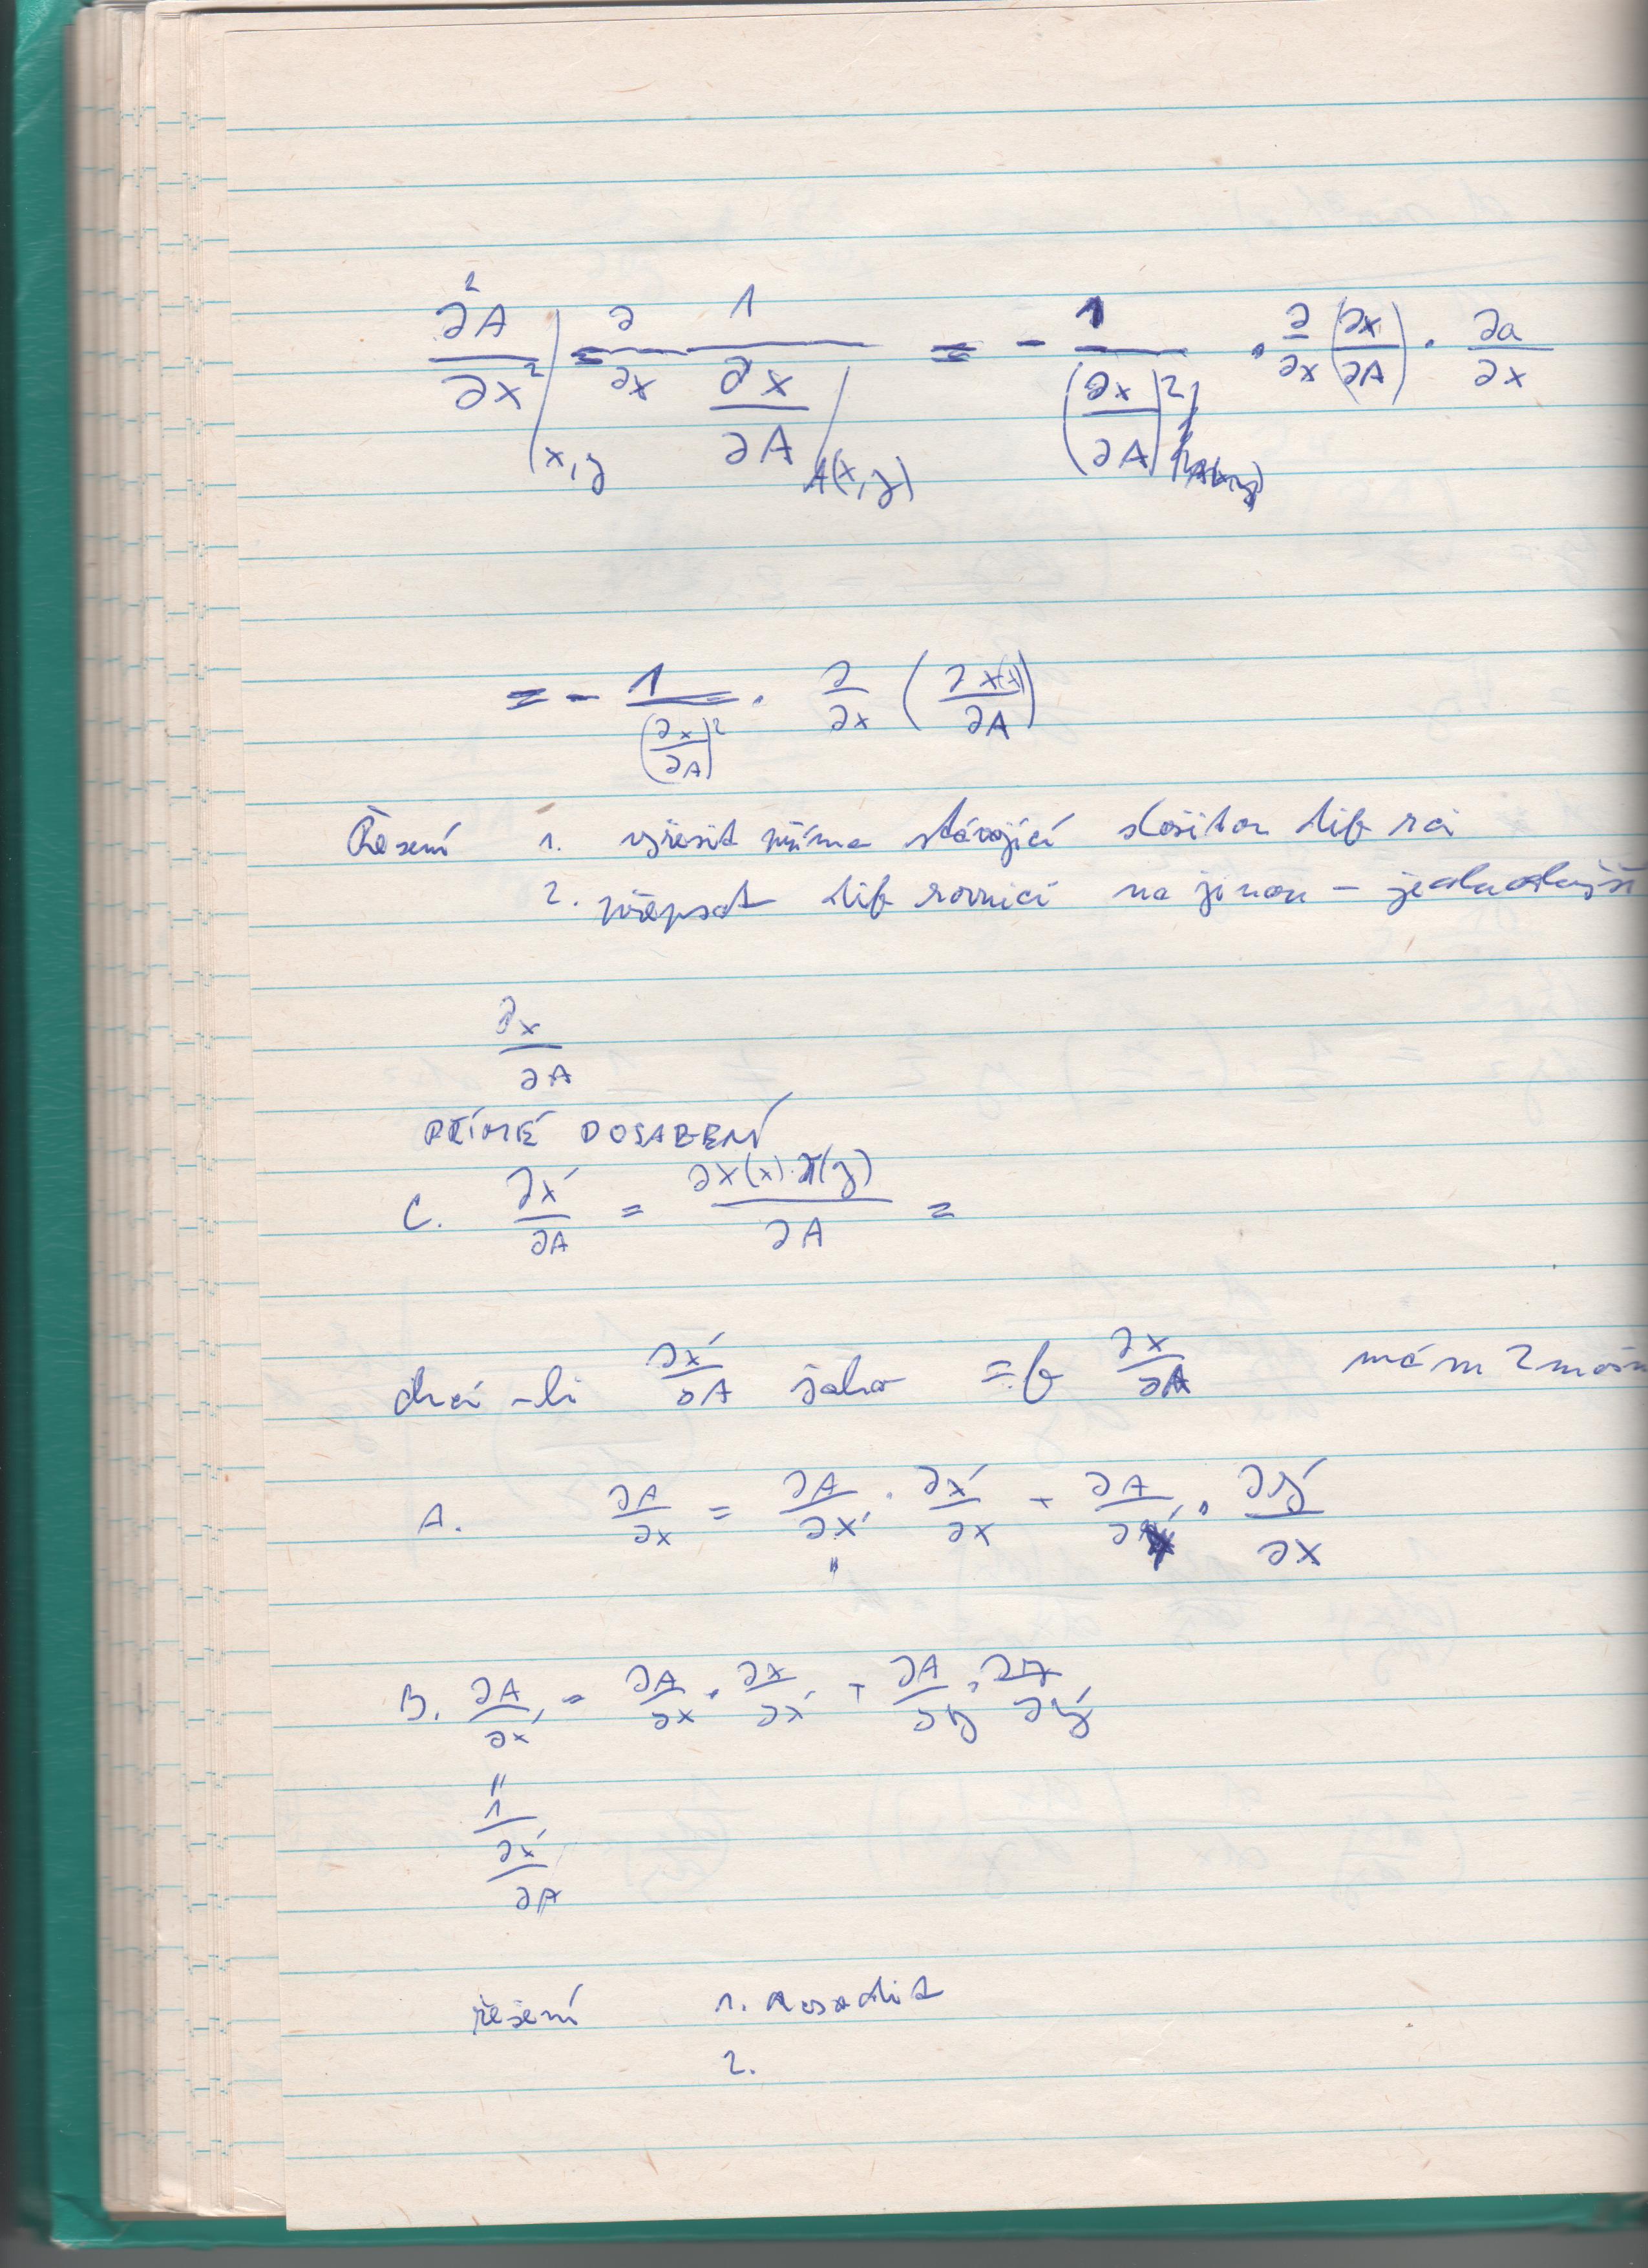 ∂²A/∂x² |x,y = ∂/∂x 1/(∂x/∂A)|A(x,y) = - 1/(∂x/∂A)² · ∂/∂x (∂x/∂A) · ∂a/∂x
= - 1/(∂x/∂A)² · ∂/∂x (∂x(x)/∂A)
Řešení 1. vyřešit přímo stávající složitou dif rci
2. přepsat dif rovnici na jinou – jednodušší
∂x/∂A
PŘÍMÉ DOSAZENÍ
C. ∂x'/∂A = ∂x(x)·π(y)/∂A =
chci-li ∂x'/∂A jako = f ∂x/∂A mám 2 možn
A. ∂A/∂x = ∂A/∂x' · ∂x'/∂x + ∂A/∂y' · ∂y'/∂x
"
B. ∂A/∂x' = ∂A/∂x · ∂x/∂x' + ∂A/∂y · ∂y/∂y'
"
1/(∂x'/∂A)
řešení 1. dosadit
2.